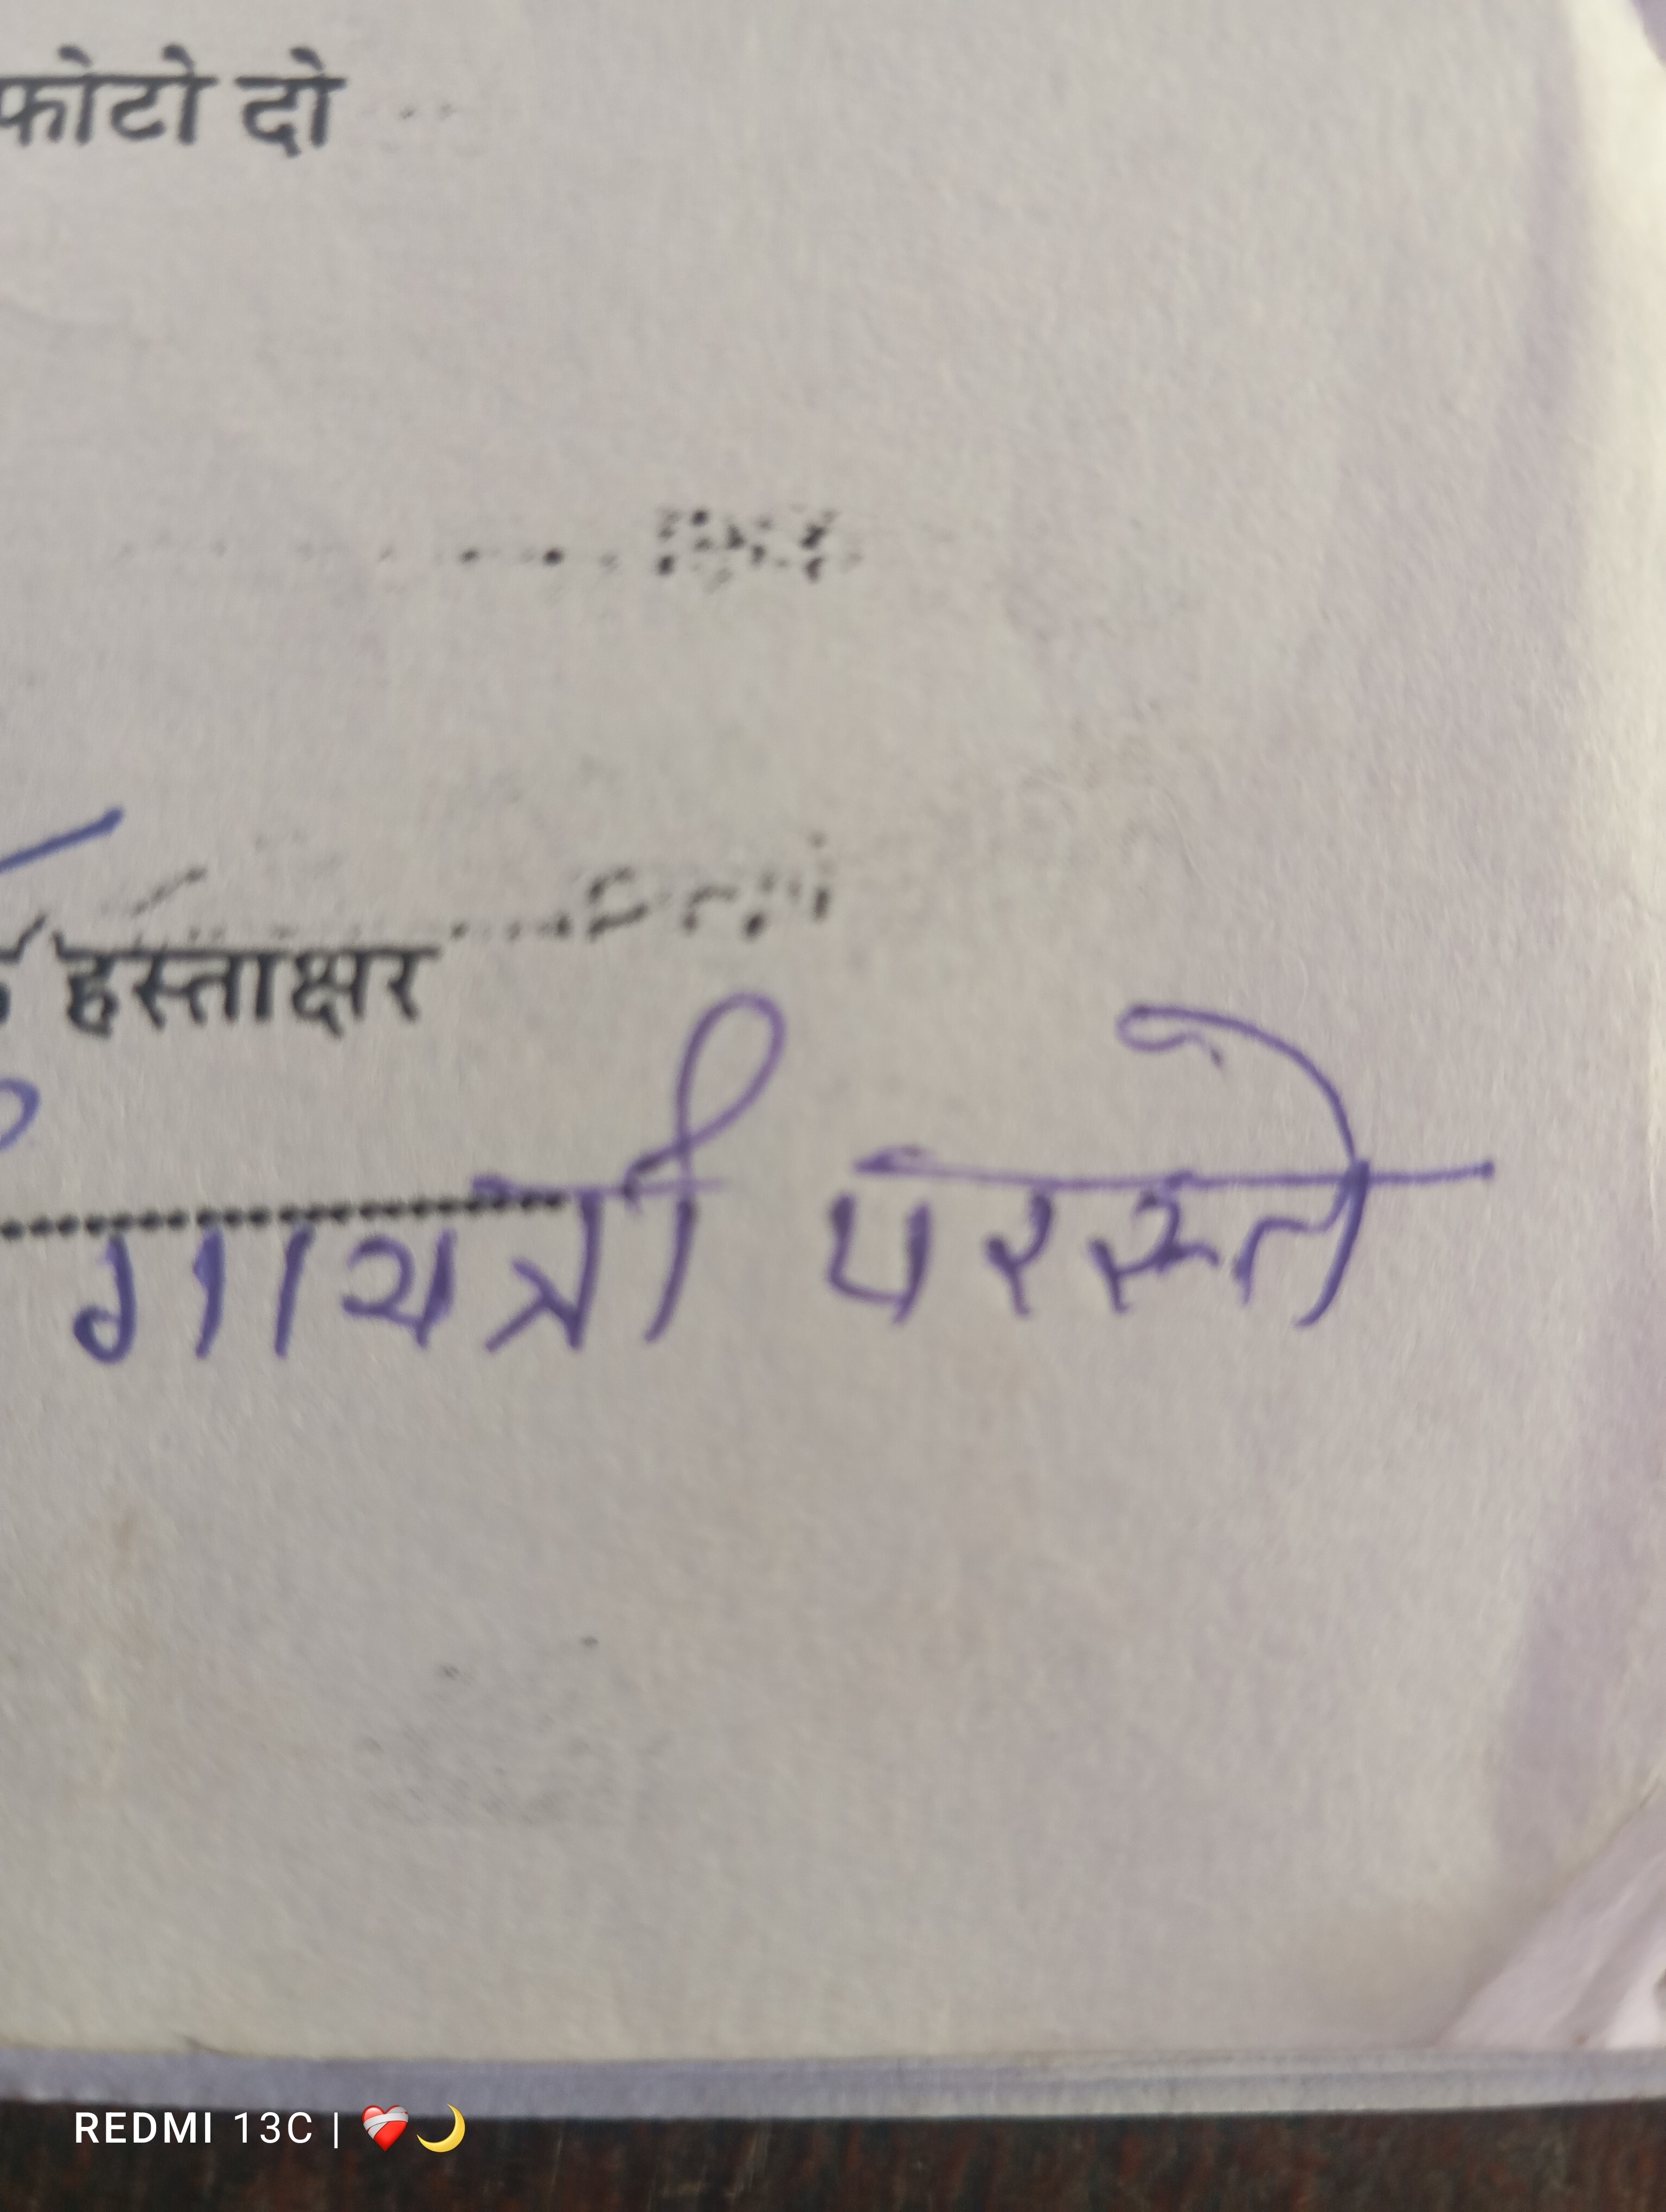 फोटो दो
हस्ताक्षर
गायत्री परस्ते
REDMI 13C | ❤️‍🩹🌙